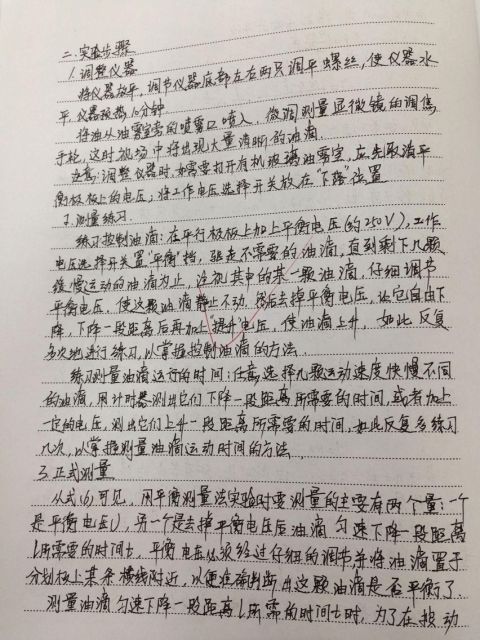 二.实验步骤
1.调整仪器
将仪器放平,调节仪器底部左右两只调平螺丝,使仪器水
平.仪器预热10分钟
将油从油雾室旁的喷雾口喷入,微调测量显微镜的调焦
手轮,这时视场中将出现大量清晰的油滴.
注意:调整仪器时,如需要打开有机玻璃油雾室,应先取消平
衡极板上的电压;将工作电压选择开关放在"下落"位置
2.测量练习.
练习控制油滴:在平行极板上加上平衡电压(约250V),工作
电压选择开关置"平衡"档,驱走不需要的油滴,直到剩下几颗
缓慢运动的油滴为止,注视其中的某一颗油滴,仔细调节
平衡电压,使这颗油滴静止不动,然后去掉平衡电压,让它自由下
降,下降一段距离后再加上"提升"电压,使油滴上升.如此反复
多次地进行练习,以掌握控制油滴的方法.
练习测量油滴运行的时间:任意选择几颗运动速度快慢不同
的油滴,用计时器测出它们下降一段距离所需要的时间,或者加上
一定的电压,测出它们上升一段距离所需要的时间,如此反复多练习
几次,以掌握测量油滴运动时间的方法.
3.正式测量
从式(6)可见,用平衡测量法实验时要测量的主要有两个量:一个
是平衡电压U,另一个是去掉平衡电压后油滴匀速下降一段距离
l所需要的时间t.平衡电压必须经过仔细的调节并将油滴置于
分划板上某条横线附近,以便准确判断出这颗油滴是否平衡了.
测量油滴匀速下降一段距离l所需的时间t时,为了在按动